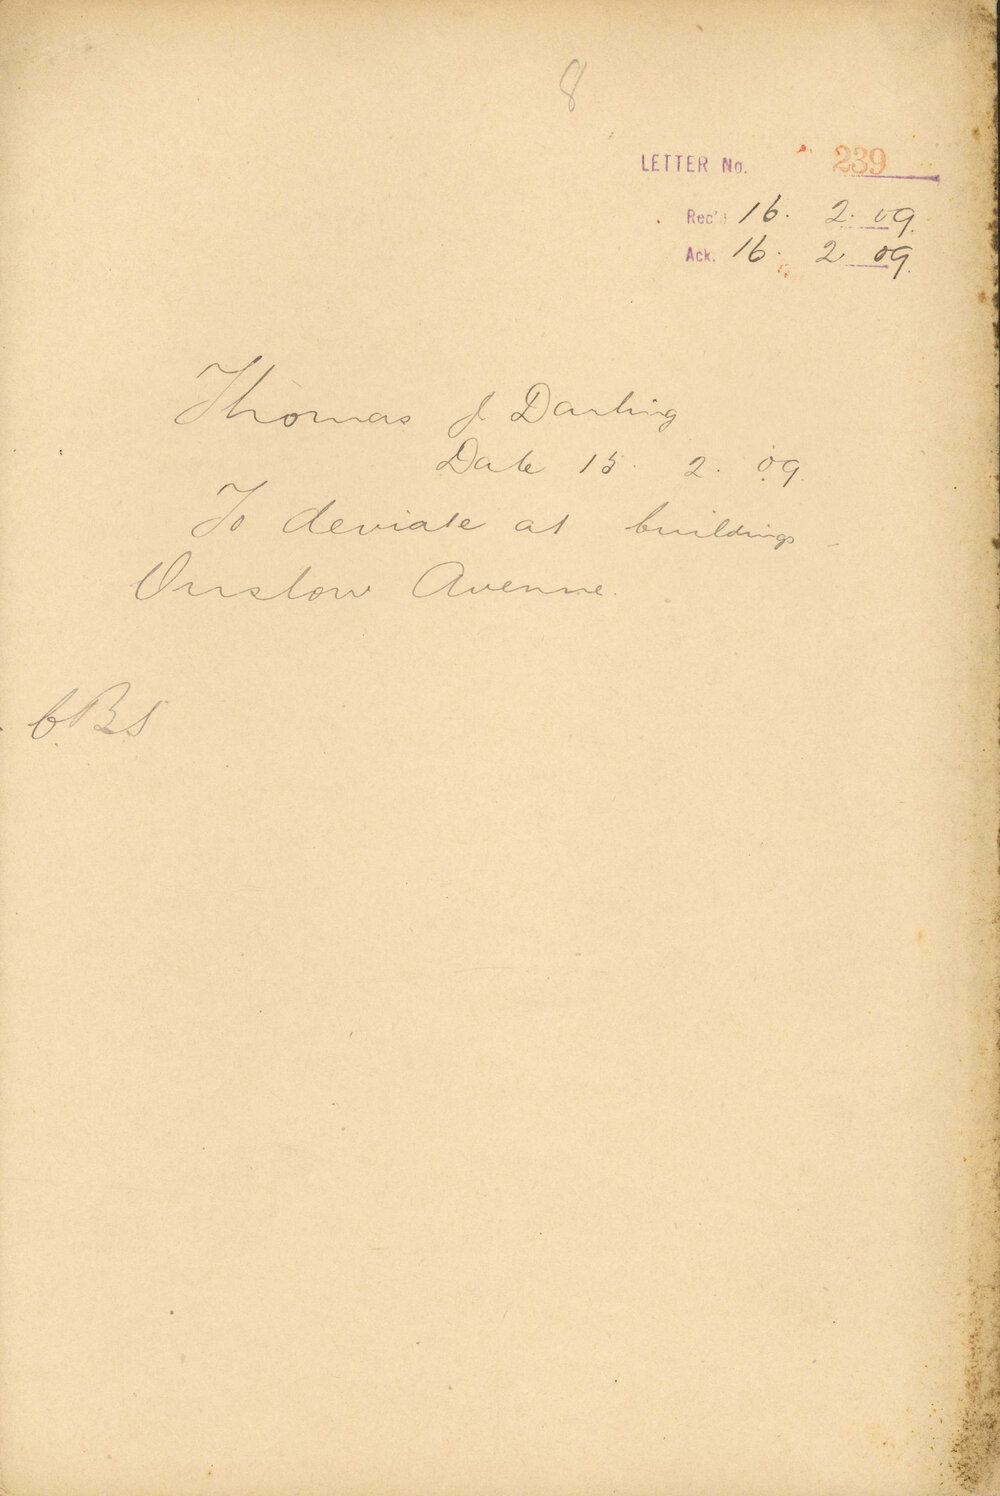 8
LETTER No. 239
Rec'd 16. 2. 09.
Ack. 16. 2 09.
Thomas J. Darling
Date 15. 2. 09.
To deviate at buildings
Onslow Avenue.
CBS